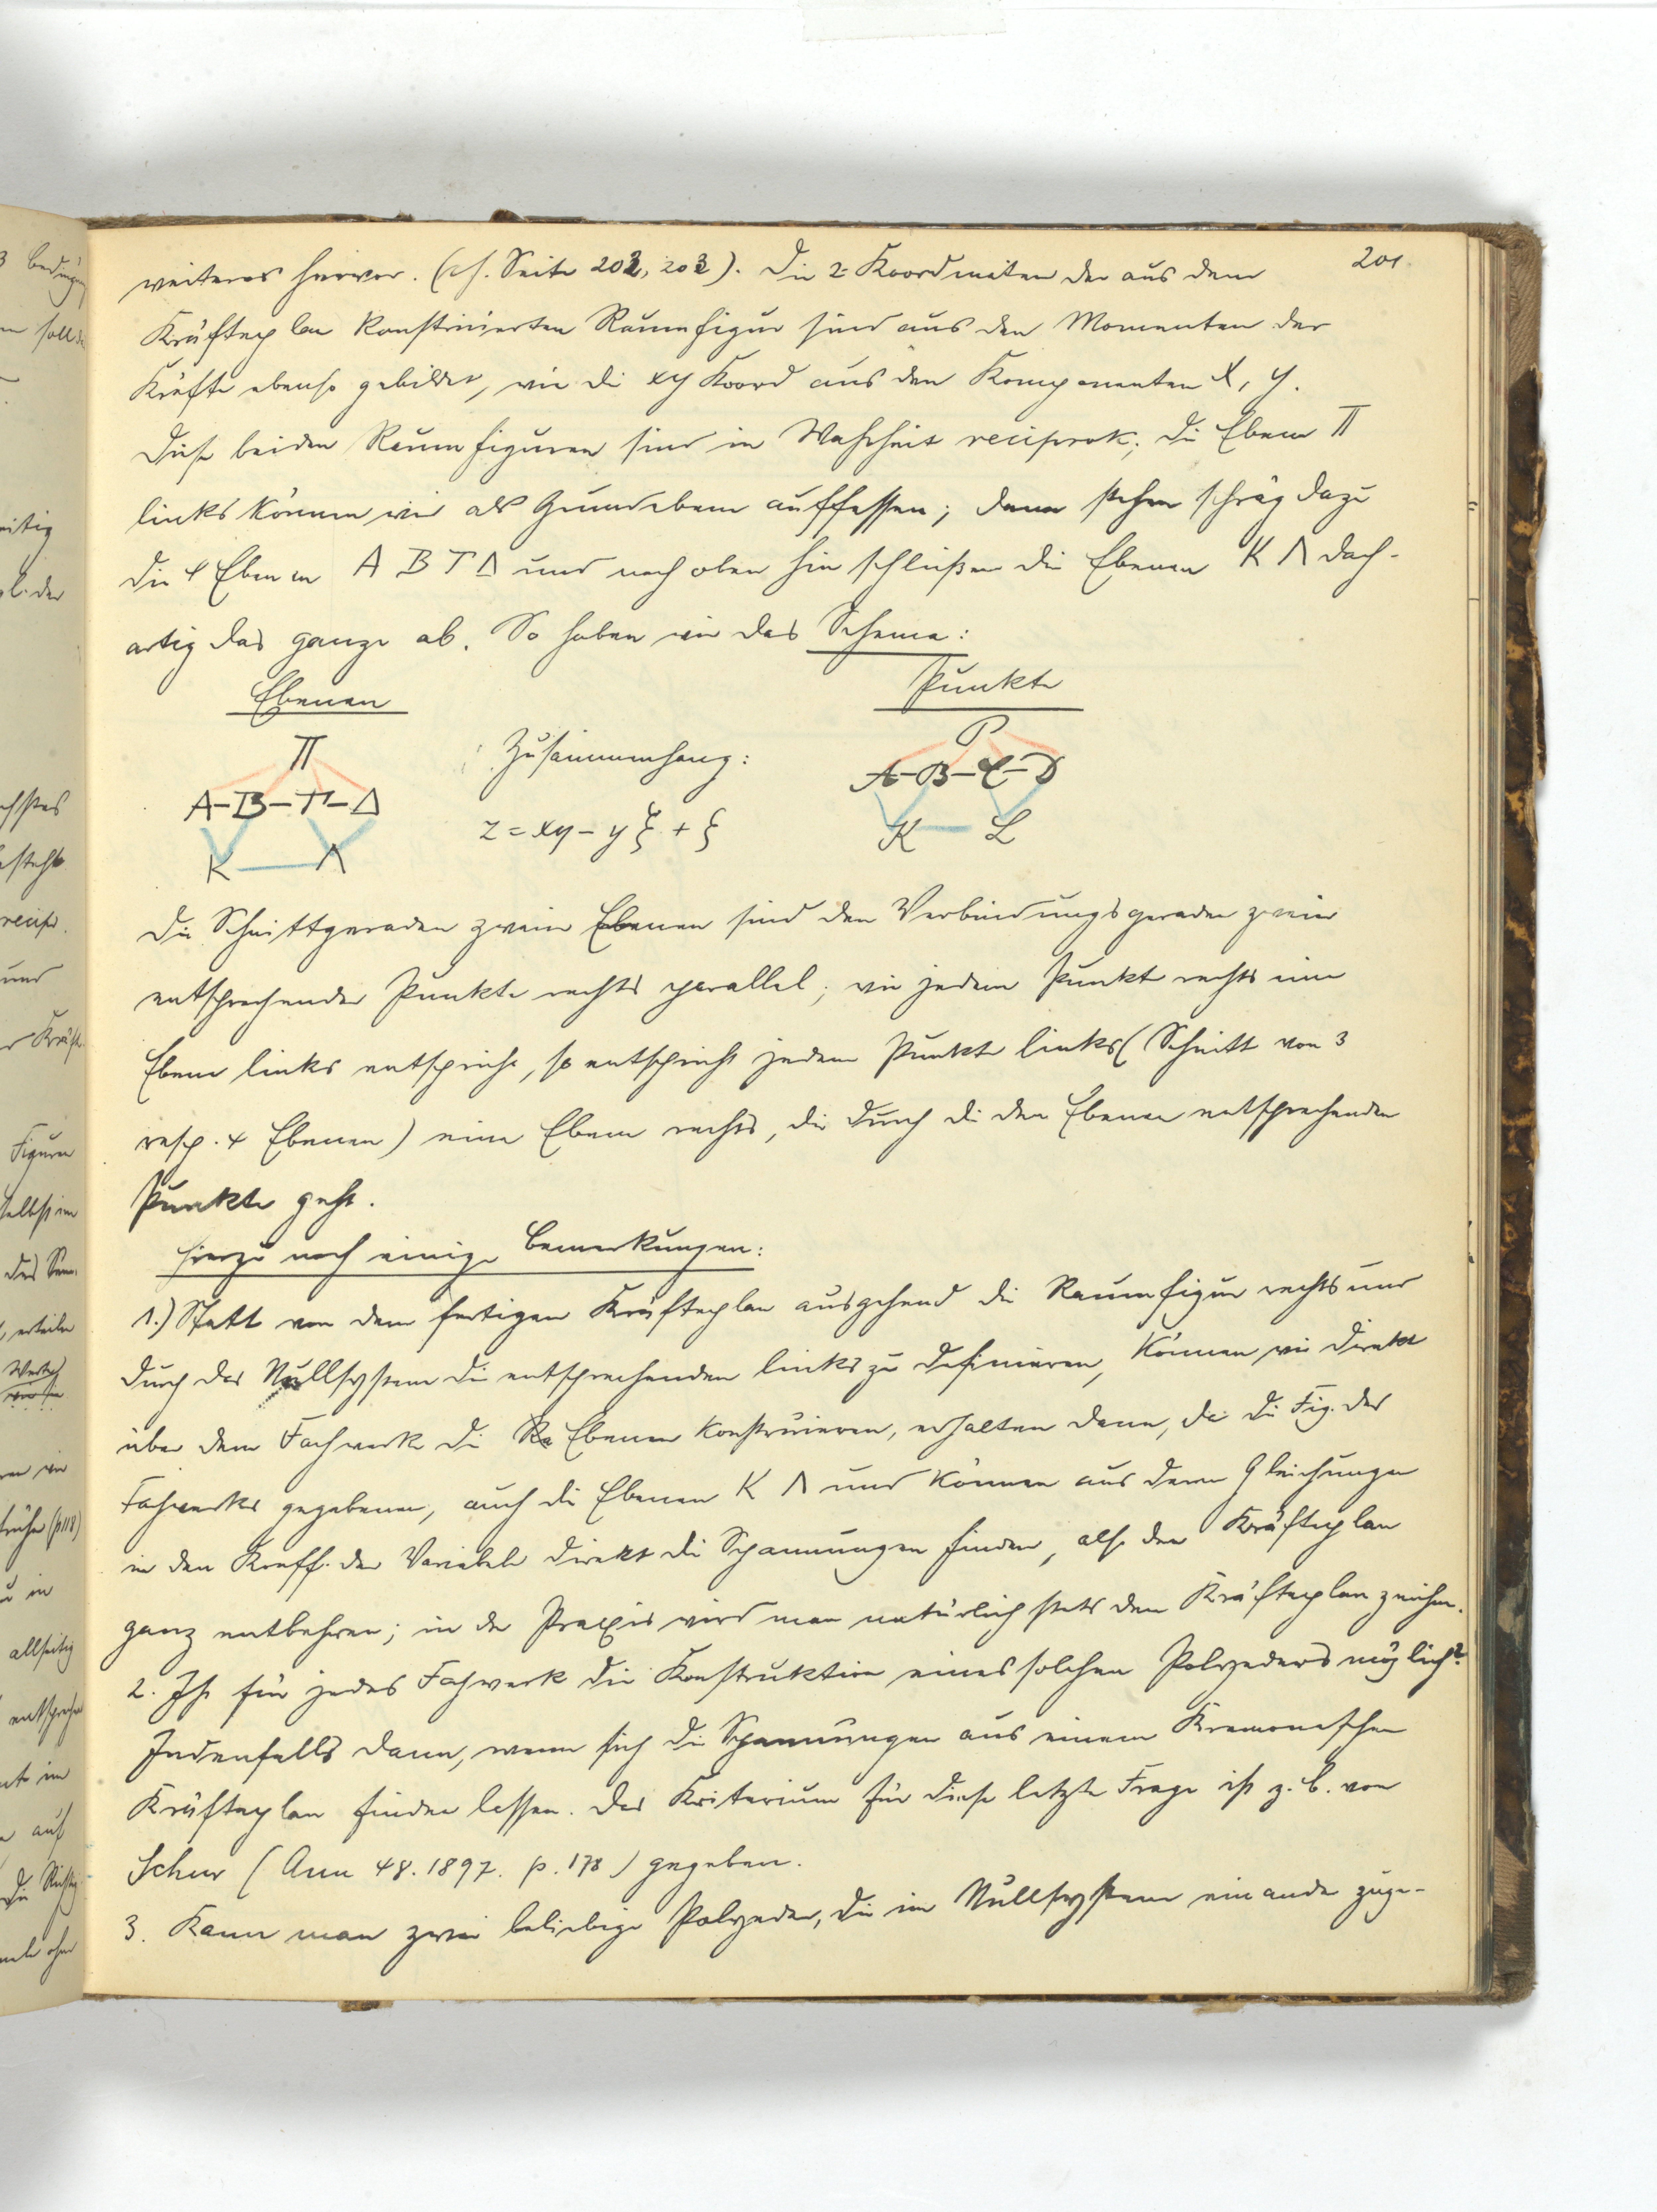 201
weiteres hervor. (cf. Seite 202, 203). Die z-Koordinaten der aus dem
Kräfteplan konstruierten Raumfigur sind aus den Momenten der
Kräfte ebenso gebildet, wie die xy Koord aus den Komponenten X, Y.
Diese beiden Raumfiguren sind in Wahrheit reciprok; die Ebene Π
links können wir als Grundebene auffassen; dann stehen schräg dazu
die 4 Ebenen A B Γ Δ und nach oben hin schließen die Ebenen K Λ dach-
artig das ganze ab. So haben wir das Schema:
Ebenen
Punkte
Π
A-B-Γ-Δ
K Λ
Zusammenhang:
z = xη - yξ + ζ
P
A-B-C-D
K L
Die Schnittgeraden zweier Ebenen sind den Verbindungsgeraden zweier
entsprechender Punkte rechts parallel; wie jedem Punkt rechts eine
Ebene links entspricht, so entspricht jedem Punkte links (Schnitt von 3
resp. 4 Ebenen) eine Ebene rechts, die durch die den Ebenen entsprechenden
Punkte geht.
Hierzu noch einige Bemerkungen:
1.) Statt von dem fertigen Kräfteplan ausgehend die Raumfigur rechts und
durch das Nullsystem die entsprechenden links zu definieren, können wir direkt
über dem Fachwerk die Ebenen konstruieren, erhalten dann, da die Fig. des
Fachwerks gegebenen, auch die Ebenen K Λ und können aus deren Gleichungen
in den Koeff. der Variabeln direkt die Spannungen finden, also den Kräfteplan
ganz entbehren; in der Praxis wird man natürlich stets den Kräfteplan zeichnen.
2. Ist für jedes Fachwerk die Konstruktion eines solchen Polyeders möglich?
Jedenfalls dann, wenn sich die Spannungen aus einem Kremonaschen
Kräfteplan finden lassen. Das Kriterium für diese letzte Frage ist z. B. von
Schur (Ann 48. 1897. p. 178) gegeben.
3. Kann man zwei beliebige Polyeder, die im Nullsystem einander zuge-